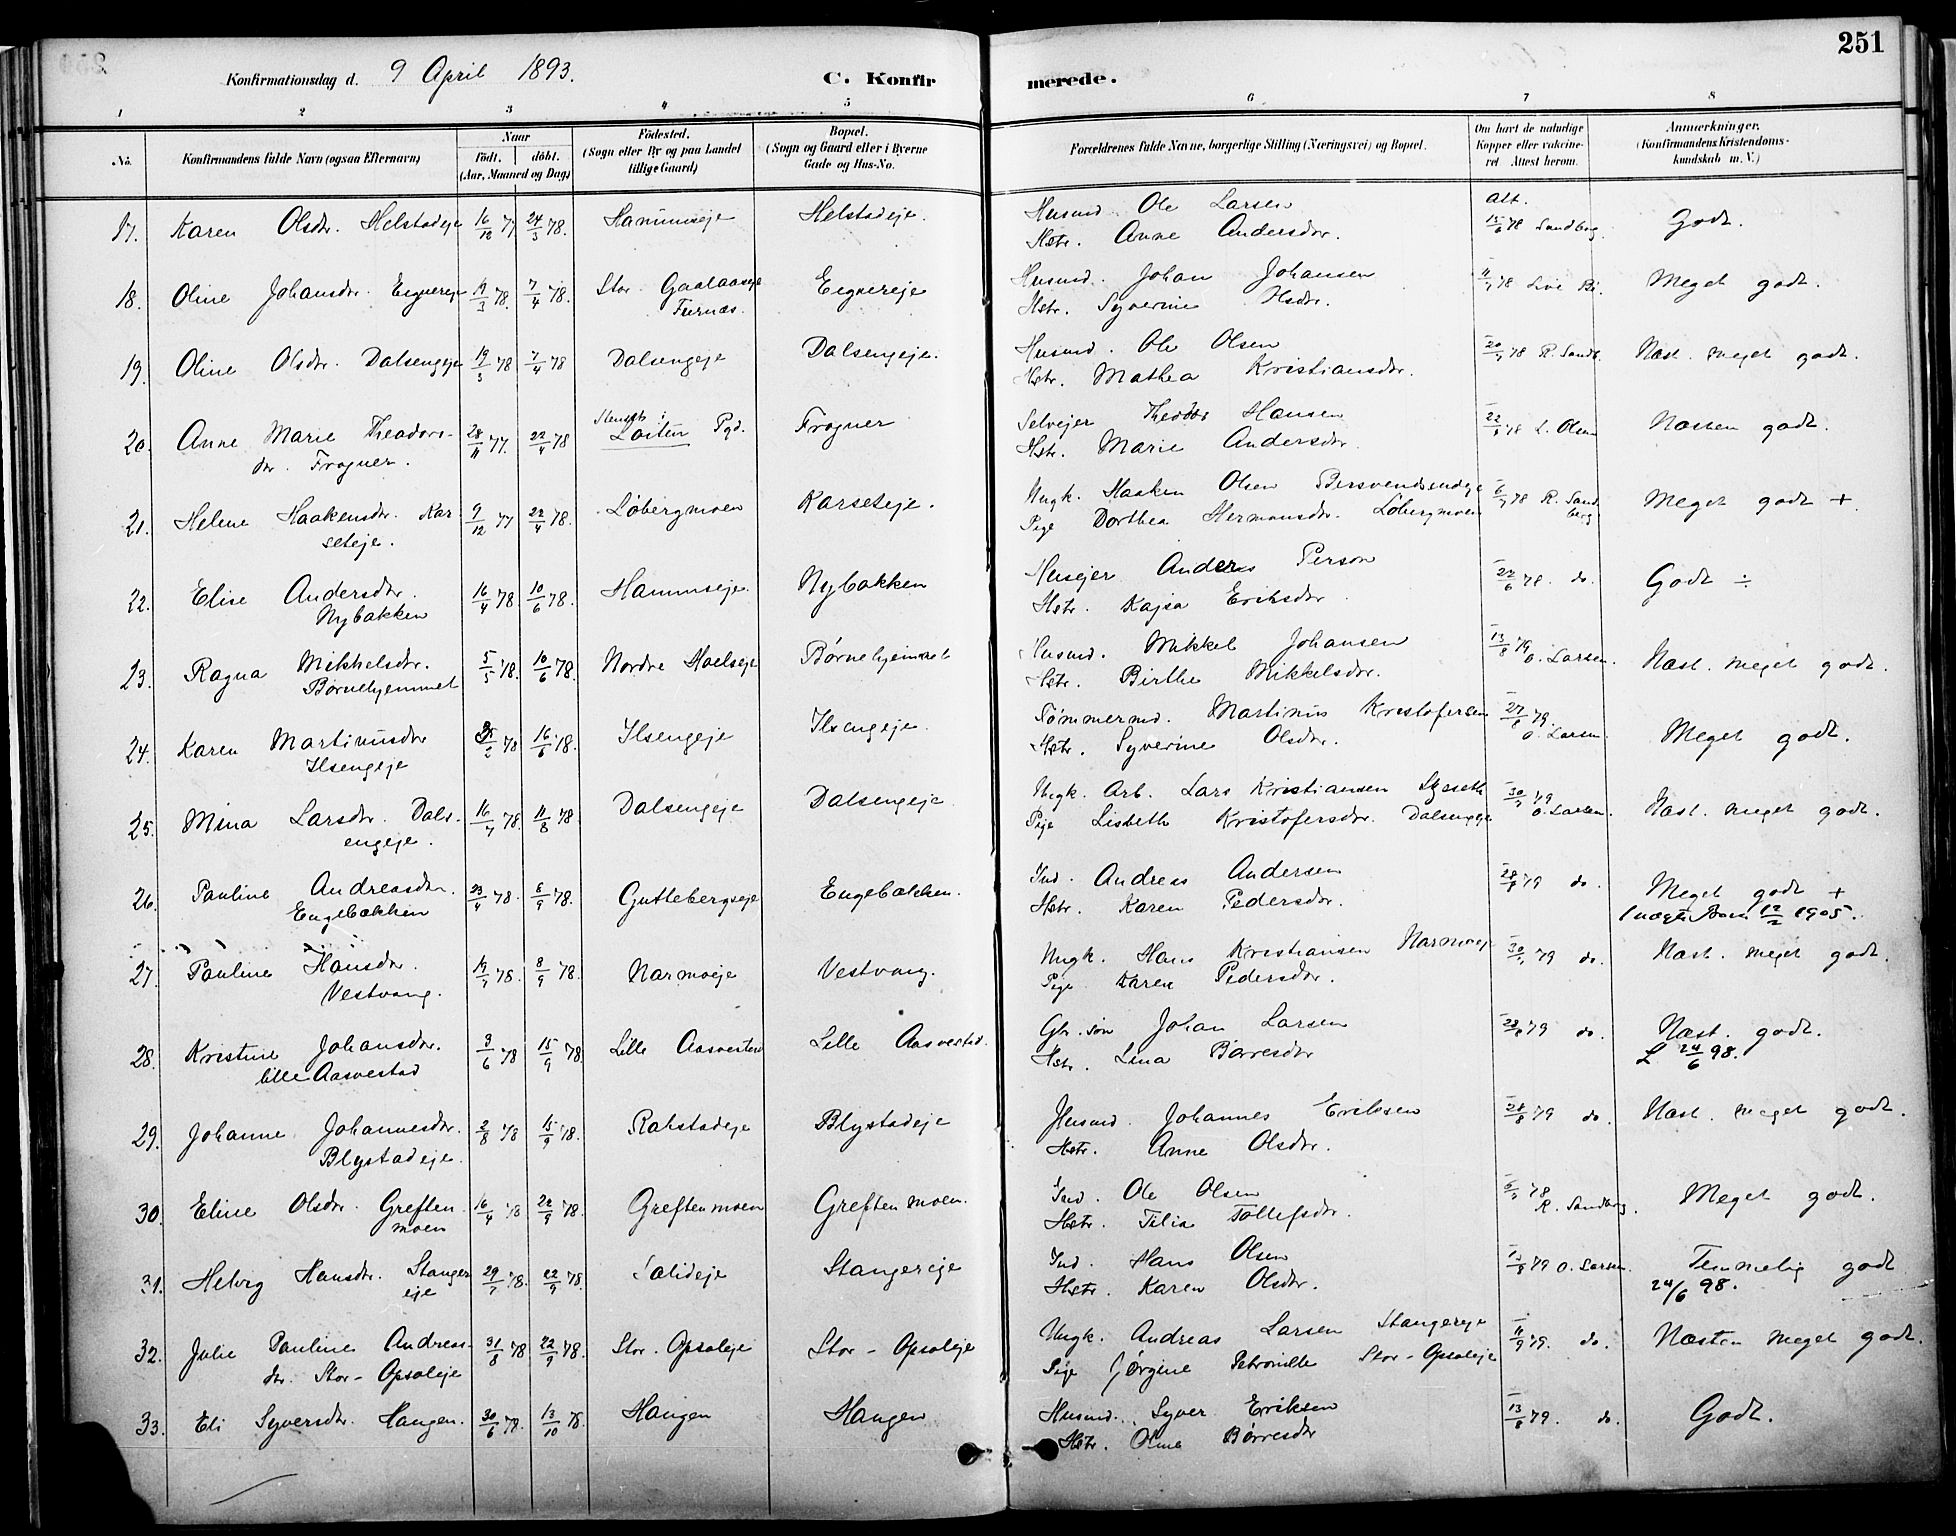 251
Konfirmationsdag d. 9 April 1893. C. Konfirmerede.
1 2 3 4 5 6 7 8
No. Konfirmandens fulde Navn (ogsaa Efternavn) Naar født. døbt. (Aar, Maaned og Dag) Födested. (Sogn eller By og paa Landet tillige Gaard) Bopæl. (Sogn og Gaard eller i Byerne Gade og Hus-No. Forældrenes fulde Navne, borgerlige Stilling (Næringsvei) og Bopæl. Om havt de naturlige Kopper eller vaccineret Attest herom. Anmærkninger. (Konfirmandens Kristendomskundskab m. V.)
17. Karen Olsdr. Helstadeje 16/12 77 24/3 78. Hammeseje Helstadeje. Husmd. Ole Larsen Att.
Hstr. Anne Andersdr. 15/6 78 Sandberg. Godt.
18. Oline Johansdr. Egnereje 19/3 78. 7/4 78. Stor Gaalaaseje Furnæs. Egnereje Husmd. Johan Johansen Meget godt.
Hstr. Syverine
19. Oline Olsdr. Dalsengeje 19/3 78 7/4 78 Dalsengeje Dalsengeje. Husmd. Ole Olsen R. Sandb. Næst. meget godt.
Hstr. Mathea Kristiansdr.
20. Anne Marie Theodors- 28/11 77. 22/4 78 Løiten Pgd. Frogner Selvejer Theodor Hansen L. Olsen Næsten godt.
dr. Frogner. Hstr. Marie Andersdr.
21. Helene Haakensdr. Kar 9/12 77 22/4 78. Løbergmoen Karseteje. Ungk. Haaken Olsen Bersvendseneje R. Sandberg Meget godt +.
seteje. Pige Dorthea Hermansdr. Løbergmoen
22. Elise Andersdr. 16/4 78 10/6 78. Hammseje. Nybakken Husejer Anders Person 22/6 78. do. Godt ÷
Nybakken Hstr. Kajsa Eriksdr.
23. Ragna Mikkelsdr. 5/5 78. 10/6 78. Nordre Hoelseje Børnehjemmet Husmd. Mikkel Johansen 13/8 79 O. Larsen. Næst. meget godt.
Børnehjemmet Hstr. Birthe Mikkelsdr.
24. Karen Martinusdr 78 16/6 78. Ilsengeje Ilsengeje. Tømmermd. Martinus Kristofersen 79. O. Larsen Meget godt.
Ilsengeje Hstr. Syverine Olsdr.
25. Mina Larsdr. Dals- 16/7 78. 11/8 78 Dalsengeje Dalsengeje Ungk. Arb. Lars Kristiansen 79 O. Larsen. Næst. meget godt.
engeje. Pige Lisbeth Kristofersdr. Dalsengeje
26. Pauline Andreasdr. 23/4 78. 8/9 78. Guttebergseje Engebakken. Ind. Andreas Andersen 79 do. Meget godt +
Engebakken Hstr. Karen Pedersdr. 12/2 1905.
27. Pauline Hansdr. 19/7 78. 8/9 78. Narmoeje Vestvang. Ungk. Hans Kristiansen Narmoeje 79 do. Næst. meget godt.
Vestvang. Pige Karen Pedersdr.
28. Kristine Johansdr. 3/6 78 15/9 78 Lille Aasvestad Lille Aasvestad. Gbr. søn Johan Larsen 79 do. Næst. godt.
lille Aasvestad Hstr. Lina Børresdr L 24/6 98.
29. Johanne Johannesdr. 2/8 78 15/9 78. Rokstadeje Blystadeje Husmd. Johannes Eriksen 28/8 79 do. Næst. meget godt.
Blystadeje. Hstr. Anne Olsdr.
30. Eline Olsdr. Greften 16/4 78 22/9 78. Greftenmoen Greftenmoen. Ind. Ole Olsen 78 R. Sandberg. Meget godt.
moen Hstr. Tilia Tollefsdr.
31. Helvig Hansdr. Stanger 29/7 78. 22/9 78. Salideje Stangereje Ind. Hans Olsen 13/8 79 O. Larsen. Temmelig godt
eje Hstr. Karen Olsdr. 24/6 98.
32. Julie Pauline Andreas- 31/8 78 22/9 78. Stor-Opsaleje Stor-Opsaleje Ungk. Andreas Larsen Stangereje 11/9 79. do. Næsten meget godt.
dr. Stor-Opsaleje Pige Jørgine Petronille Stor-Opsaleje
33. Eli Syversdr. Haugen. 30/6 78. 13/10 78. Haugen Haugen Husmd. Syver Eriksen 13/6 79. do. Godt.
Hstr. Oline Børresdr